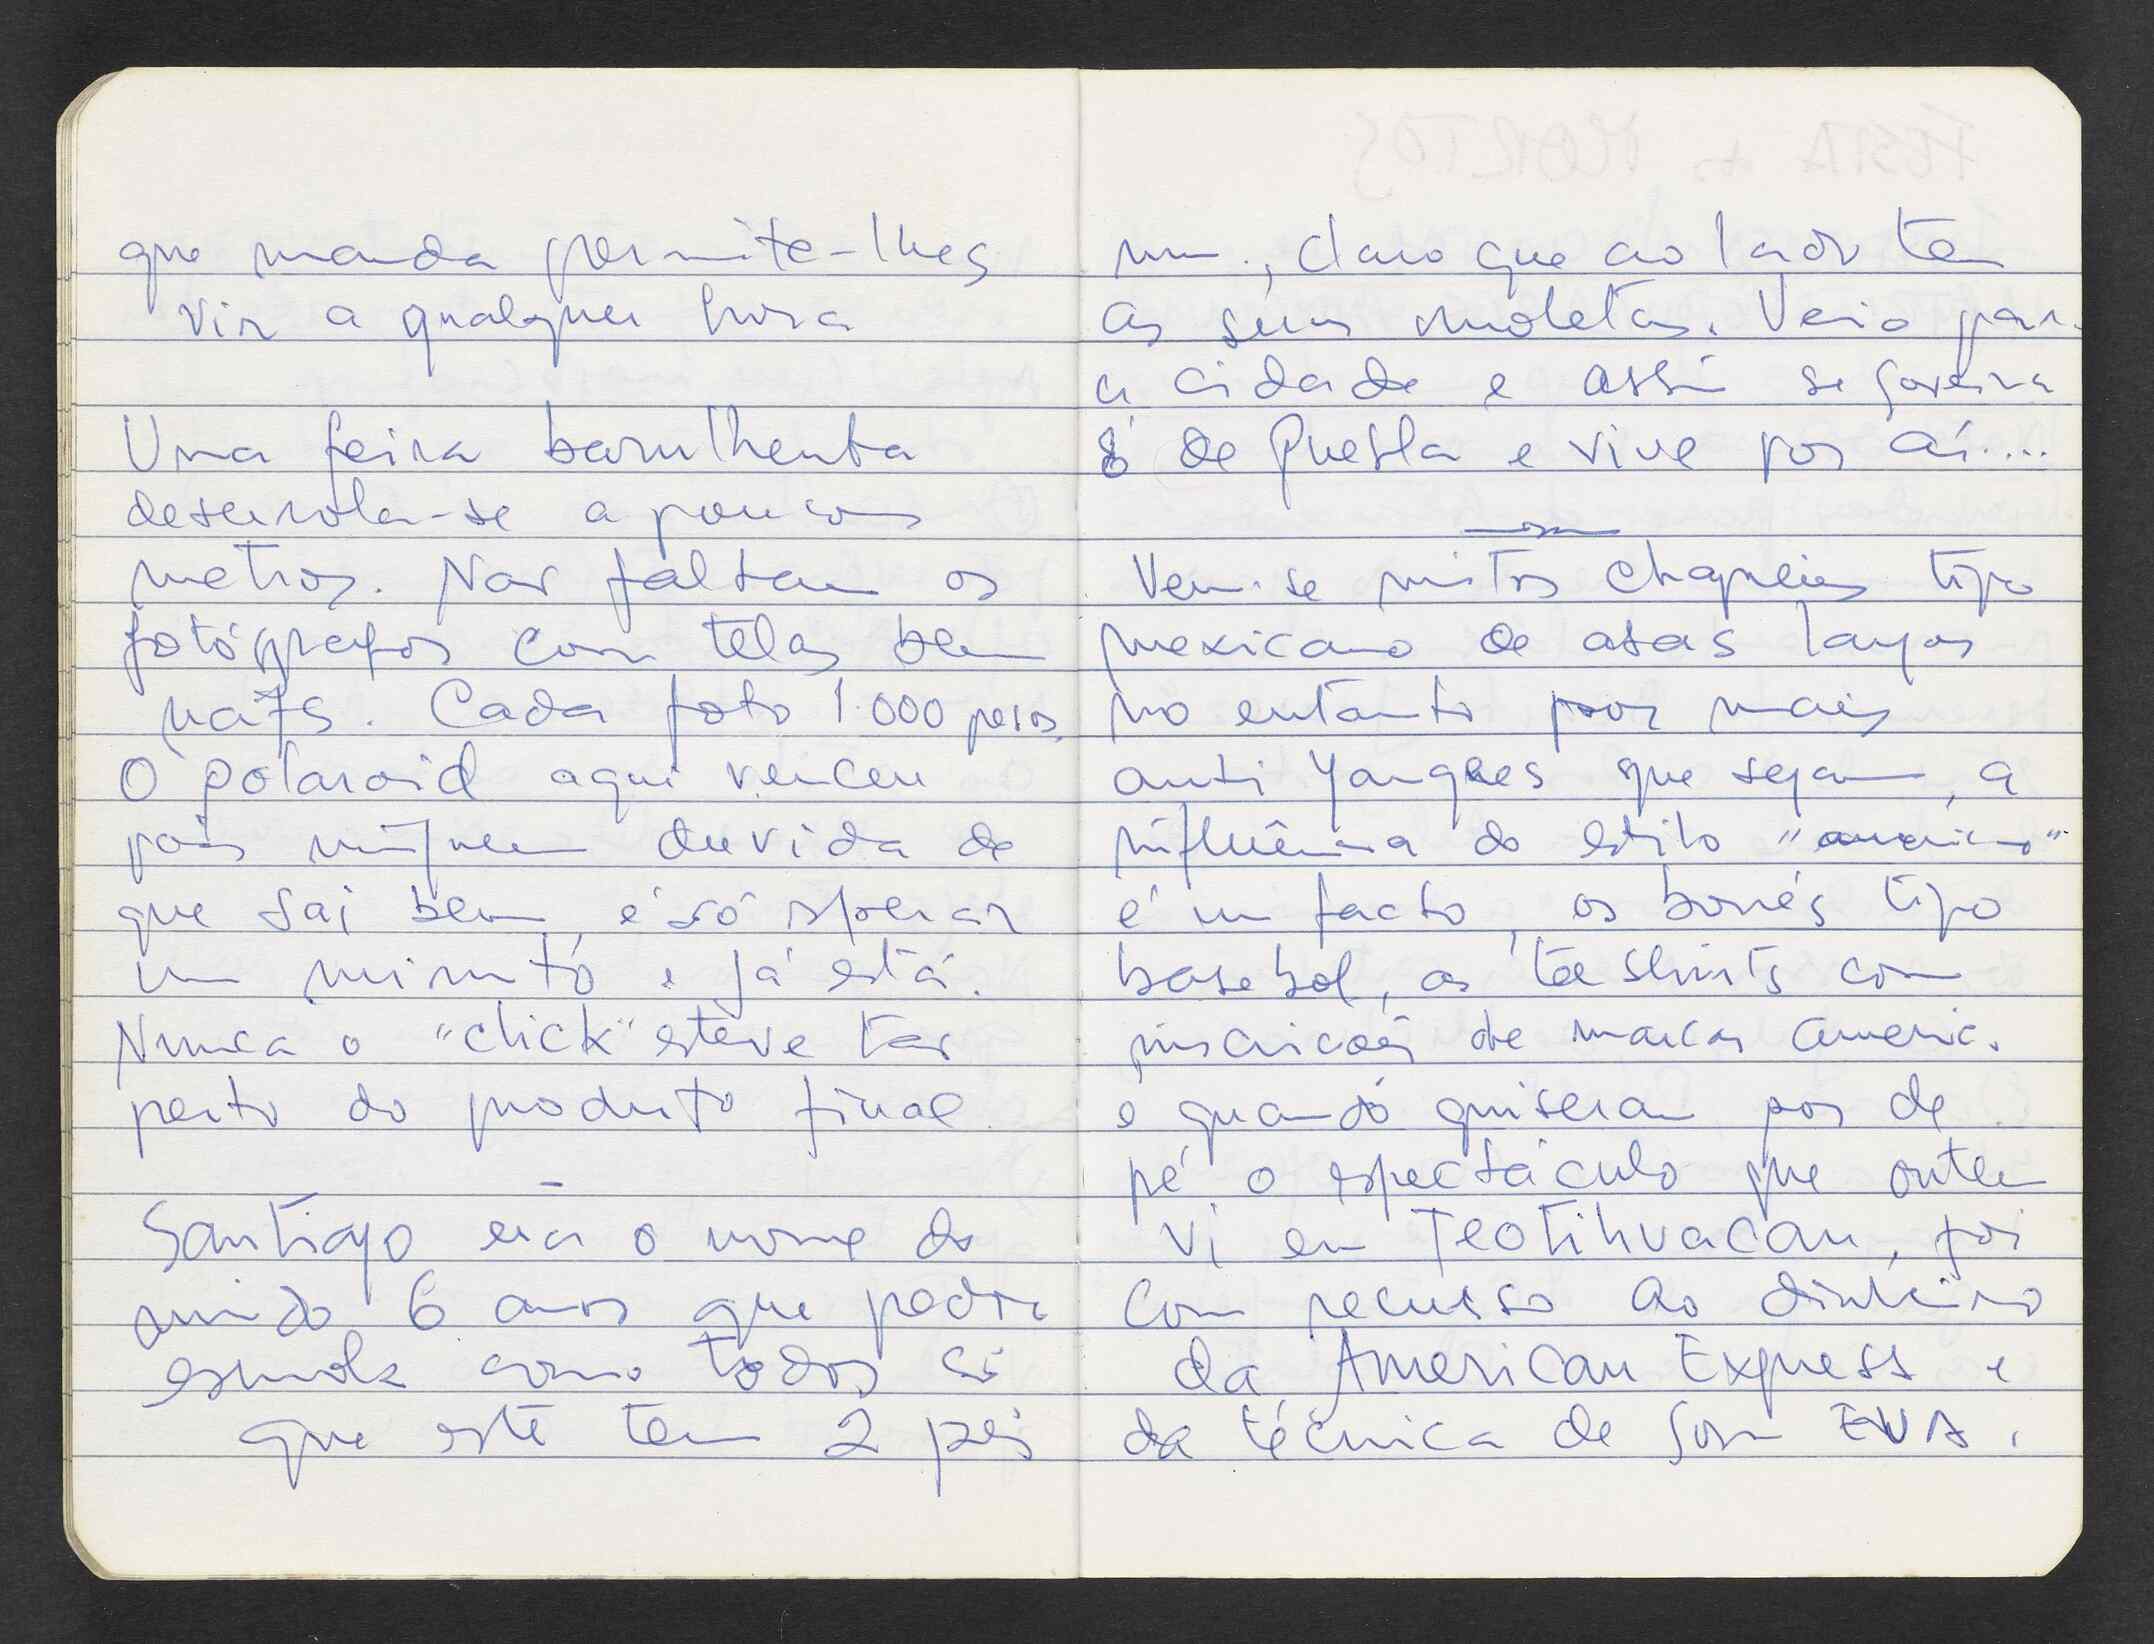 que manda permite-lhes
vir a qualquer hora
Uma feira barulhenta
desenrola-se a poucos
metros. Não faltam os
fotógrafos com telas bem
naïfs. Cada foto 1.000 pesos.
O polaroid aqui venceu
pois ninguem duvida de
que sai bem, é só esperar
um minuto e já está.
Nunca o "click" esteve tão
perto do produto final
Santiago era o nome do
miudo 6 anos que pedia
esmola como todos só
que este tem 2 pés
claro que ao lado tem
as suas muletas. Veio para
a cidade e assim se governa
é de Puebla e vive por aí....
Vem-se muitos chapeus tipo
mexicano de abas largas
no entanto por mais
anti Yanques que sejam, a
influência do estilo "americano"
é um facto, os bonés tipo
basebol, as tee shirts com
inscrições de marcas americ.
e quando quiseram por de
pé o espectáculo que ontem
vi em Teotihuacan, foi
com recurso ao dinheiro
da American Express e
da técnica de som EUA.